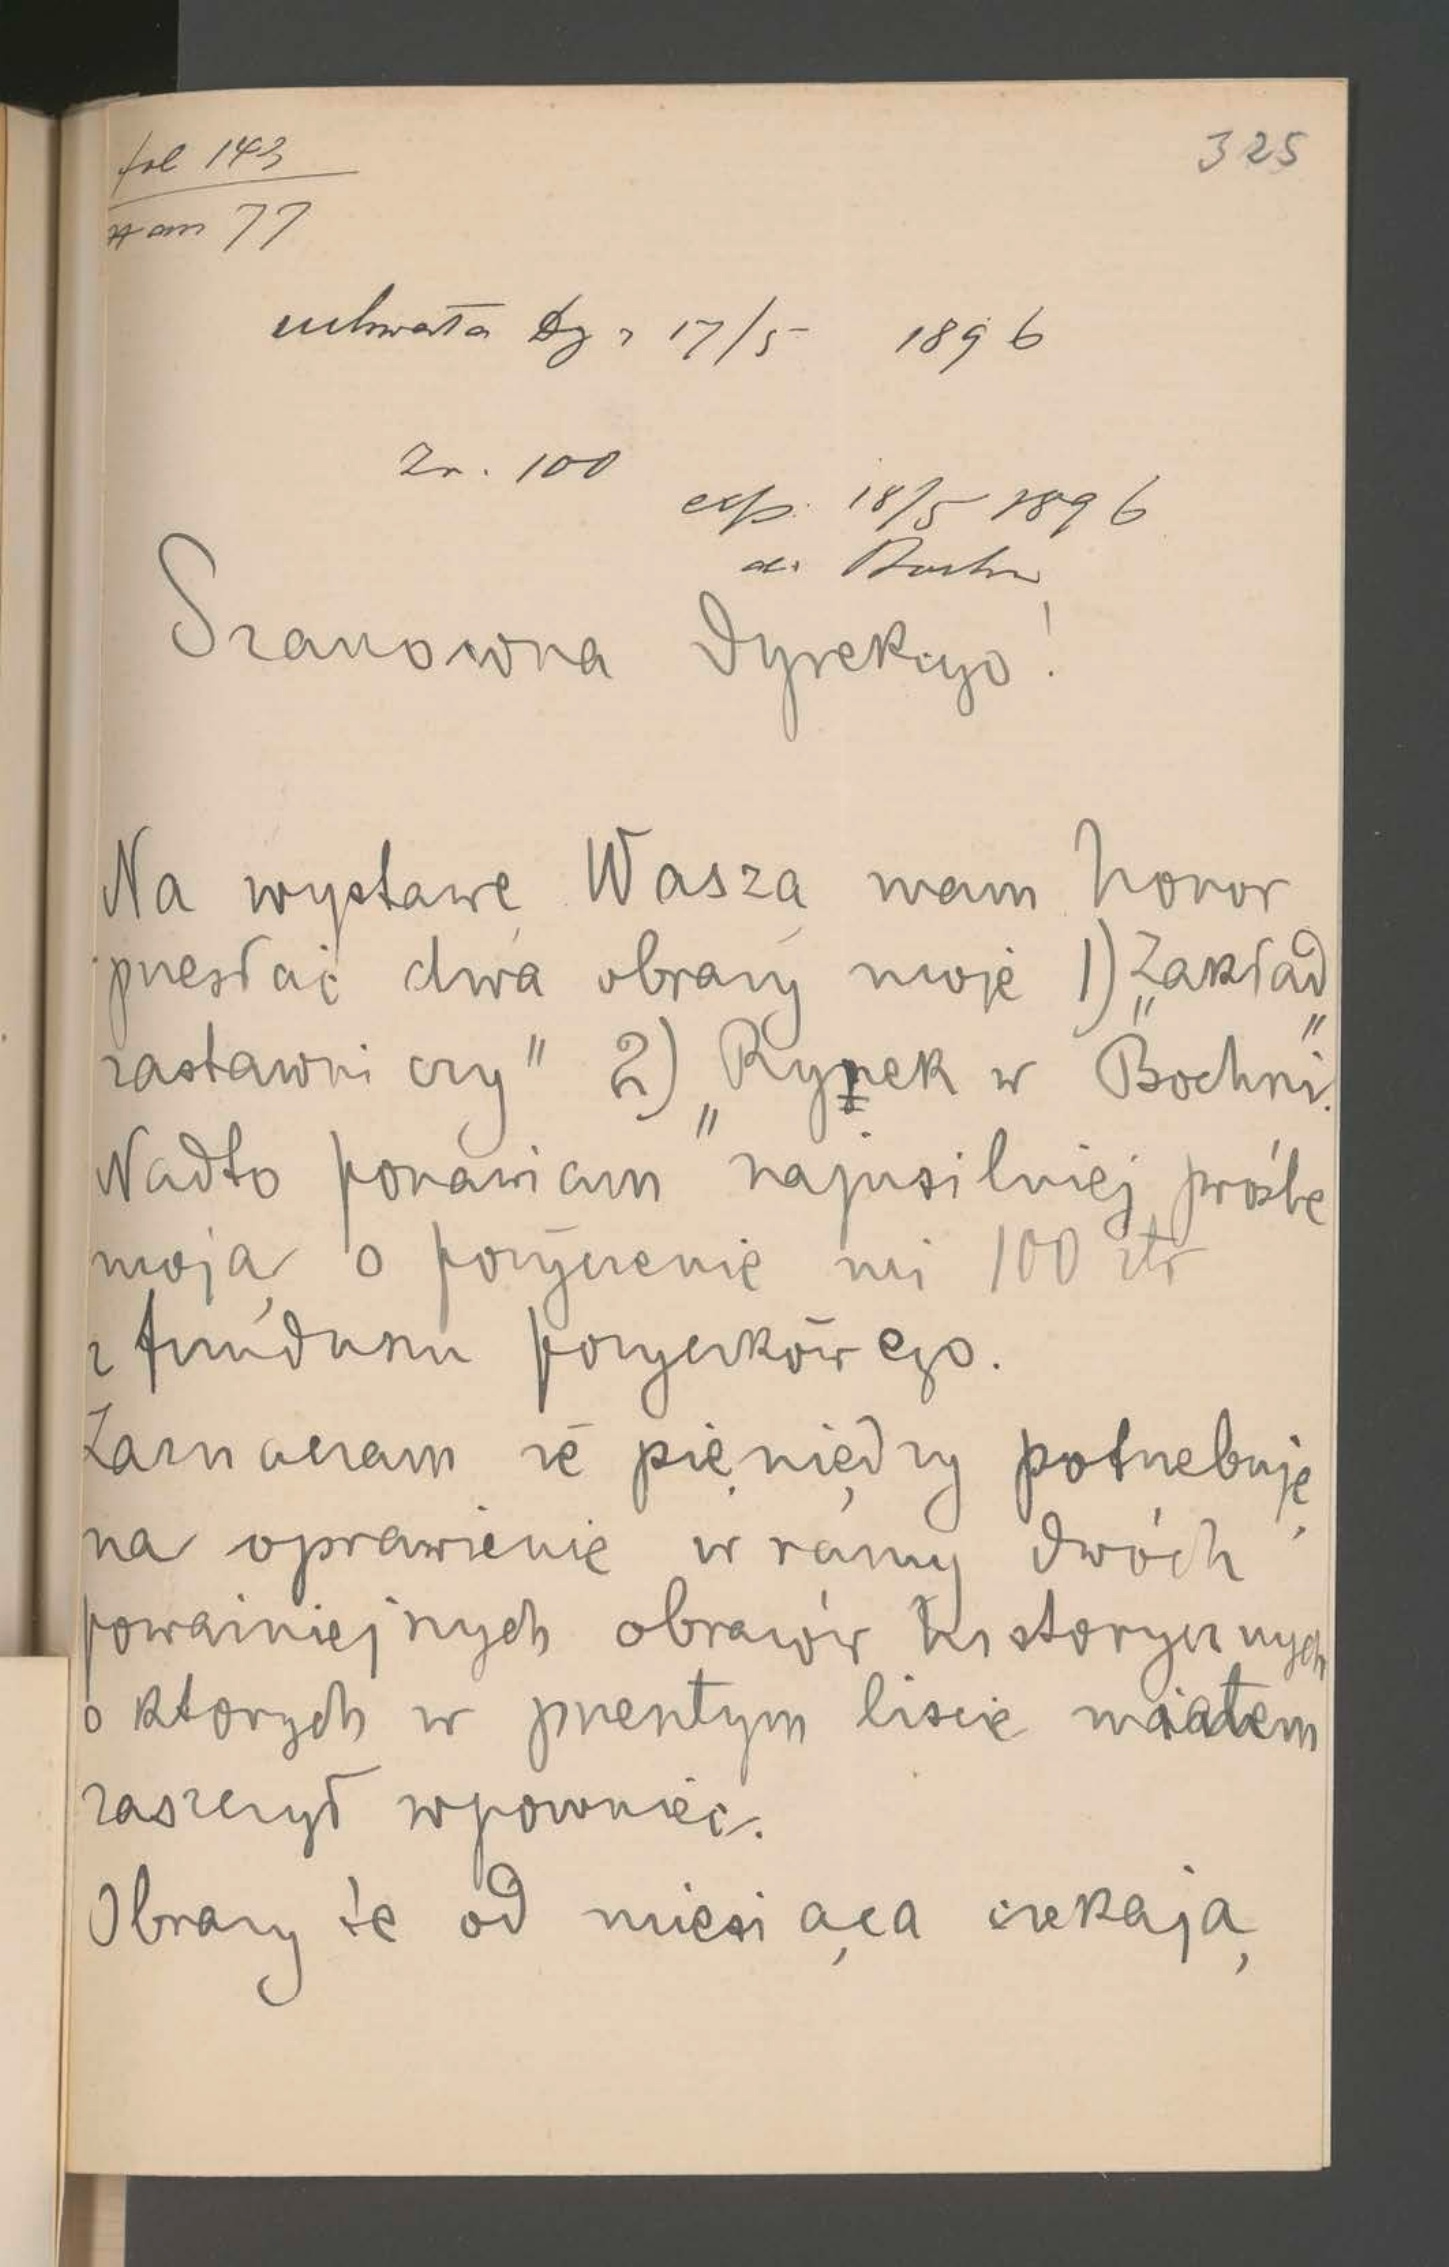 fol 143
325
77
uchwała Dy z 17/5 1896
Zr. 100
exp. 18/5 1896
do Bochni
Szanowna Dyrekcyo!
Na wystawę Waszą mam honor
przesłać dwa obrazy moje 1) „Zakład
zastawniczy" 2) „Rynek w Bochni".
Nadto ponawiam najusilniej prośbę
moją o pożyczenie mi 100 złr
z funduszu pożyczkowego.
Zaznaczam że pieniędzy potrzebuję
na oprawienie w ramy dwóch
poważniejszych obrazów historycznych
o ktorych w przeszłym liscie miałem
zaszczyt wspomnieć.
Obrazy te od miesiąca czekają